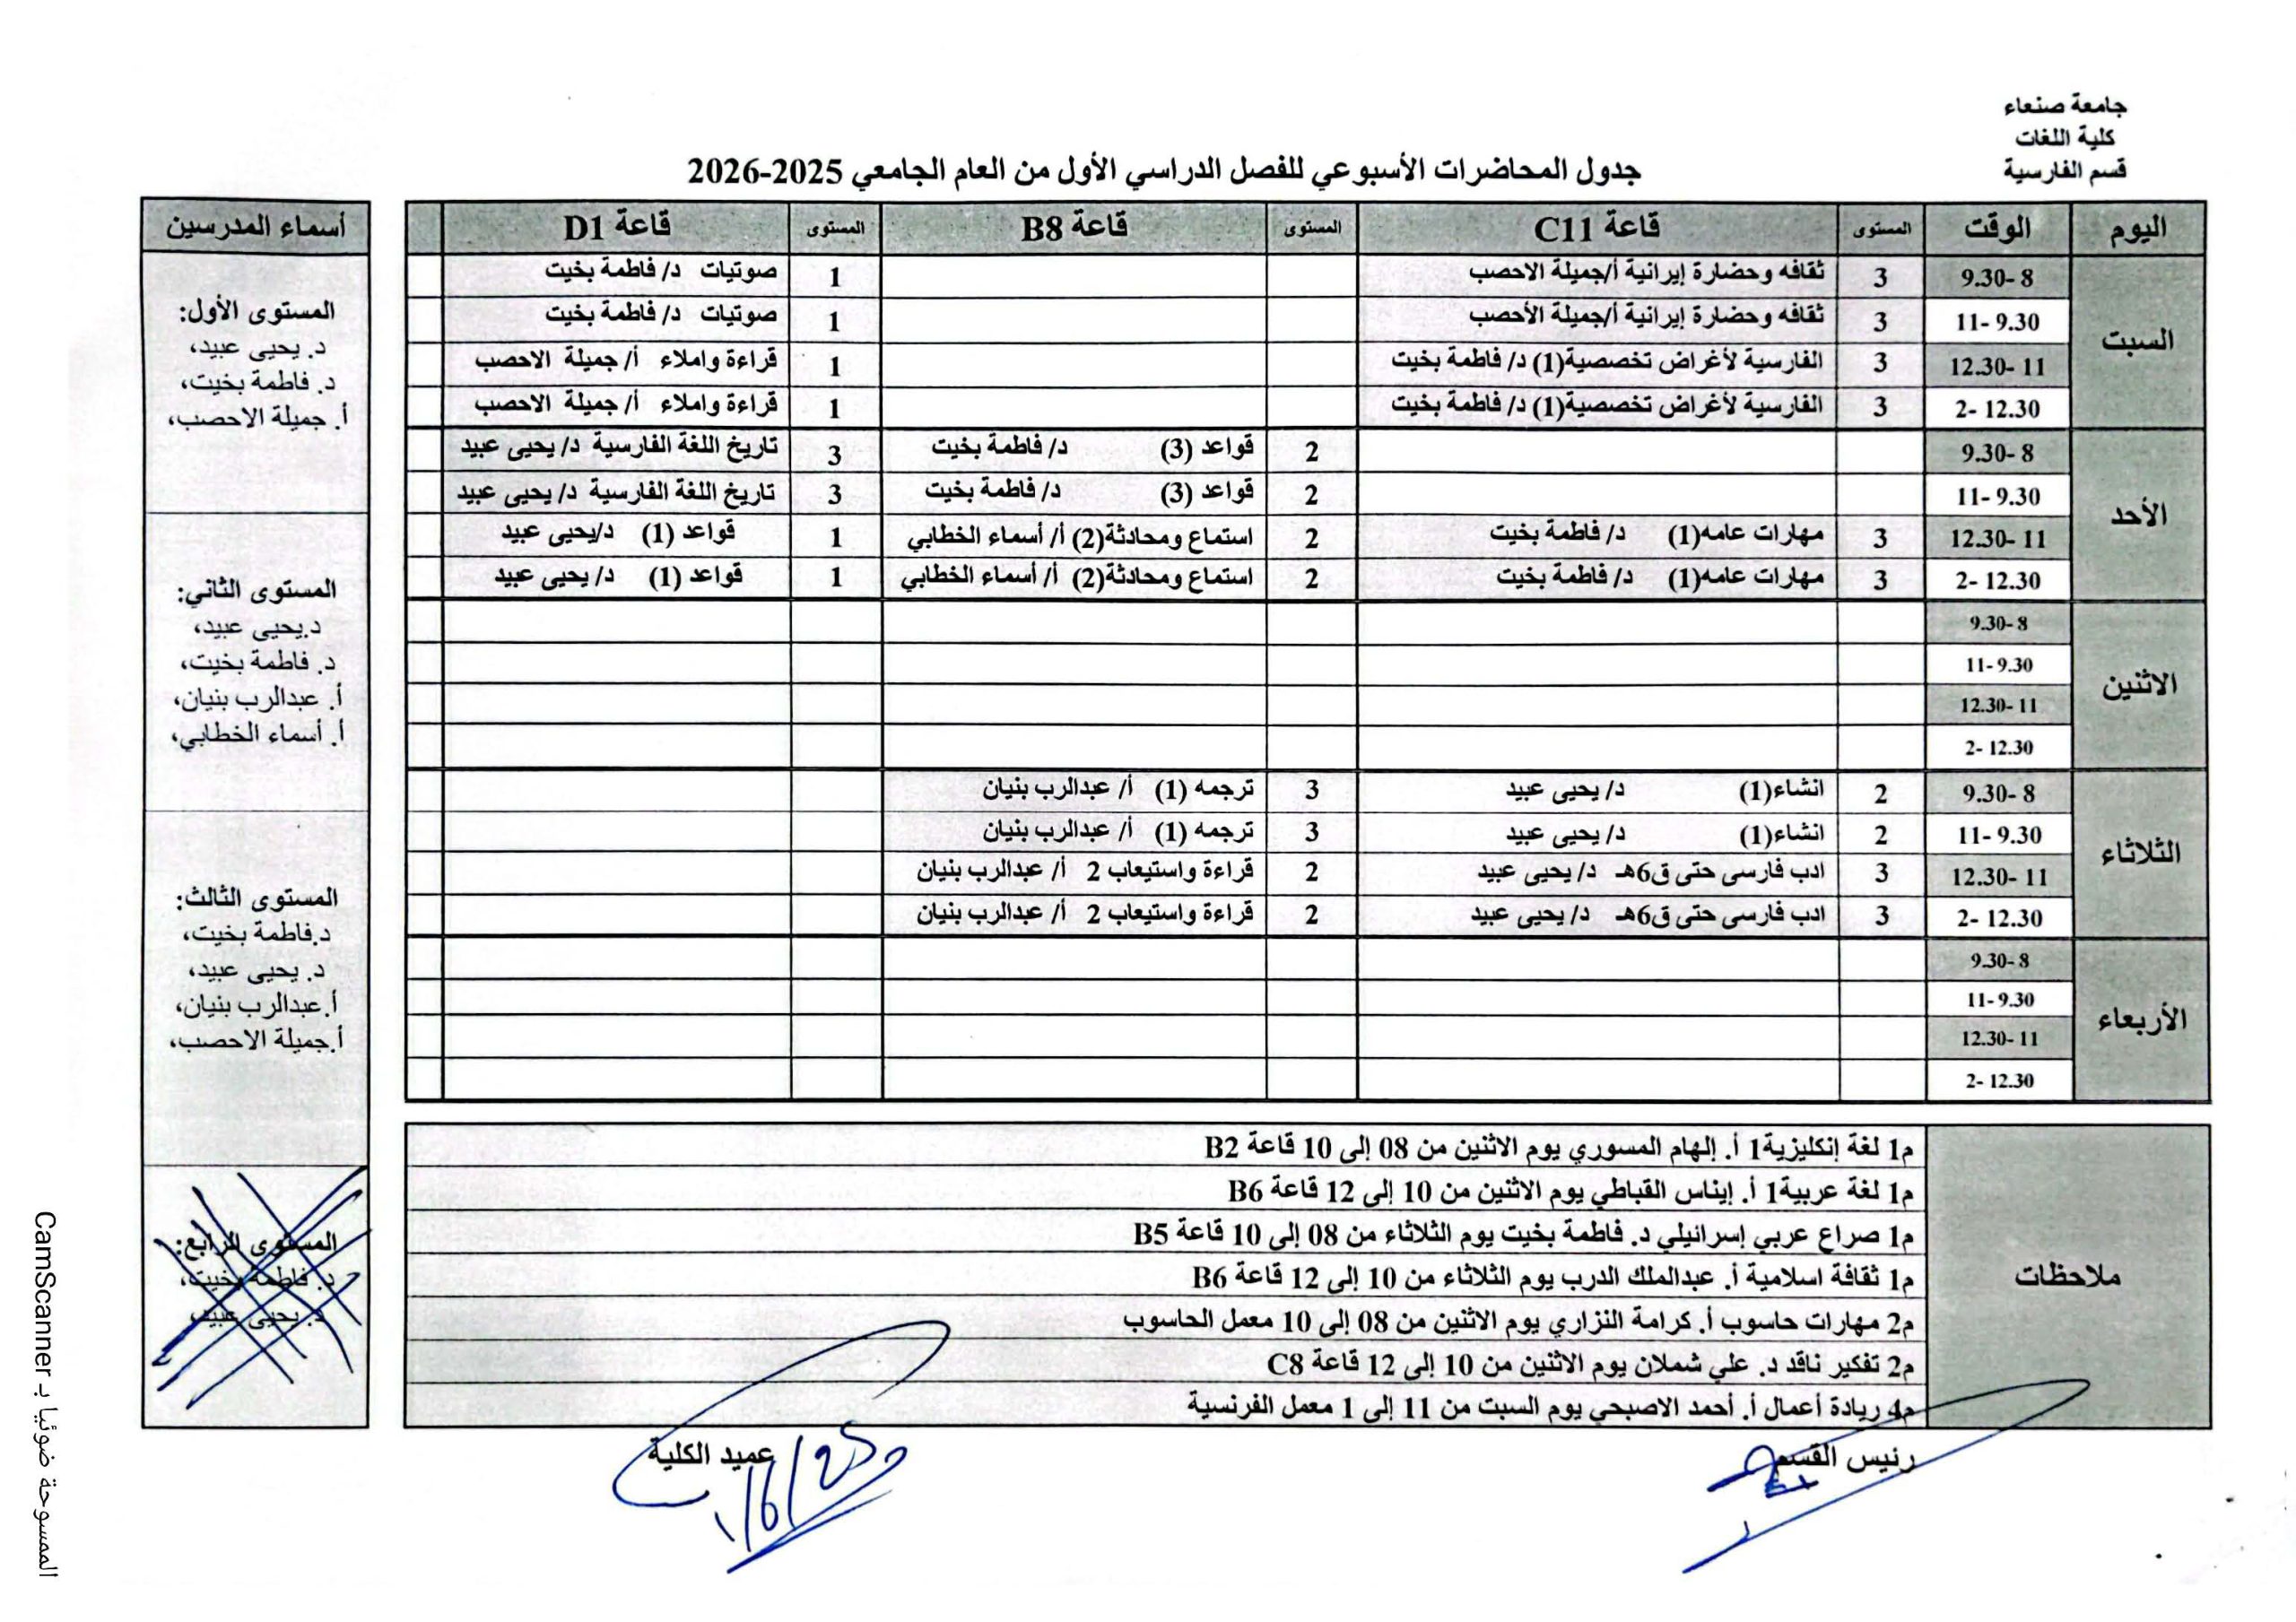 جامعة صنعاء
كلية اللغات
قسم الفارسية
جدول المحاضرات الأسبوعي للفصل الدراسي الأول من العام الجامعي 2025-2026
اليوم الوقت المستوى قاعة C11 المستوى قاعة B8 المستوى قاعة D1
السبت
8 -9.30 3 ثقافه وحضارة إيرانية أ/جميلة الاحصب 1 صوتيات د/ فاطمة بخيت
9.30 -11 3 ثقافه وحضارة إيرانية أ/جميلة الأحصب 1 صوتيات د/ فاطمة بخيت
11 -12.30 3 الفارسية لأغراض تخصصية(1) د/ فاطمة بخيت 1 قراءة واملاء أ/ جميلة الاحصب
12.30 -2 3 الفارسية لأغراض تخصصية(1) د/ فاطمة بخيت 1 قراءة واملاء أ/ جميلة الاحصب
الأحد
8 -9.30 2 قواعد (3) د/ فاطمة بخيت 3 تاريخ اللغة الفارسية د/ يحيى عبيد
9.30 -11 2 قواعد (3) د/ فاطمة بخيت 3 تاريخ اللغة الفارسية د/ يحيى عبيد
11 -12.30 3 مهارات عامه(1) د/ فاطمة بخيت 2 استماع ومحادثة(2) أ/ أسماء الخطابي 1 قواعد (1) د/يحيى عبيد
12.30 -2 3 مهارات عامه(1) د/ فاطمة بخيت 2 استماع ومحادثة(2) أ/ أسماء الخطابي 1 قواعد (1) د/ يحيى عبيد
الاثنين
8 -9.30
9.30 -11
11 -12.30
12.30 -2
الثلاثاء
8 -9.30 2 انشاء(1) د/ يحيى عبيد 3 ترجمه (1) أ/ عبدالرب بنيان
9.30 -11 2 انشاء(1) د/ يحيى عبيد 3 ترجمه (1) أ/ عبدالرب بنيان
11 -12.30 3 ادب فارسى حتى ق6هـ د/ يحيى عبيد 2 قراءة واستيعاب 2 أ/ عبدالرب بنيان
12.30 -2 3 ادب فارسى حتى ق6هـ د/ يحيى عبيد 2 قراءة واستيعاب 2 أ/ عبدالرب بنيان
الأربعاء
8 -9.30
9.30 -11
11 -12.30
12.30 -2
ملاحظات
م1 لغة إنكليزية1 أ. إلهام المسوري يوم الاثنين من 08 إلى 10 قاعة B2
م1 لغة عربية1 أ. إيناس القباطي يوم الاثنين من 10 إلى 12 قاعة B6
م1 صراع عربي إسرائيلي د. فاطمة بخيت يوم الثلاثاء من 08 إلى 10 قاعة B5
م1 ثقافة اسلامية أ. عبدالملك الدرب يوم الثلاثاء من 10 إلى 12 قاعة B6
م2 مهارات حاسوب أ. كرامة النزاري يوم الاثنين من 08 إلى 10 معمل الحاسوب
م2 تفكير ناقد د. علي شملان يوم الاثنين من 10 إلى 12 قاعة C8
م4 ريادة أعمال أ. أحمد الاصبحي يوم السبت من 11 إلى 1 معمل الفرنسية
رئيس القسم
عميد الكلية
أسماء المدرسين
المستوى الأول:
د. يحيى عبيد،
د. فاطمة بخيت،
أ. جميلة الاحصب،
المستوى الثاني:
د.يحيى عبيد،
د. فاطمة بخيت،
أ. عبدالرب بنيان،
أ. أسماء الخطابي،
المستوى الثالث:
د.فاطمة بخيت،
د. يحيى عبيد،
أ.عبدالرب بنيان،
أ.جميلة الاحصب،
المستوى الرابع:
د. فاطمة بخيت،
د. يحيى عبيد،
الممسوحة ضوئيا بـ CamScanner